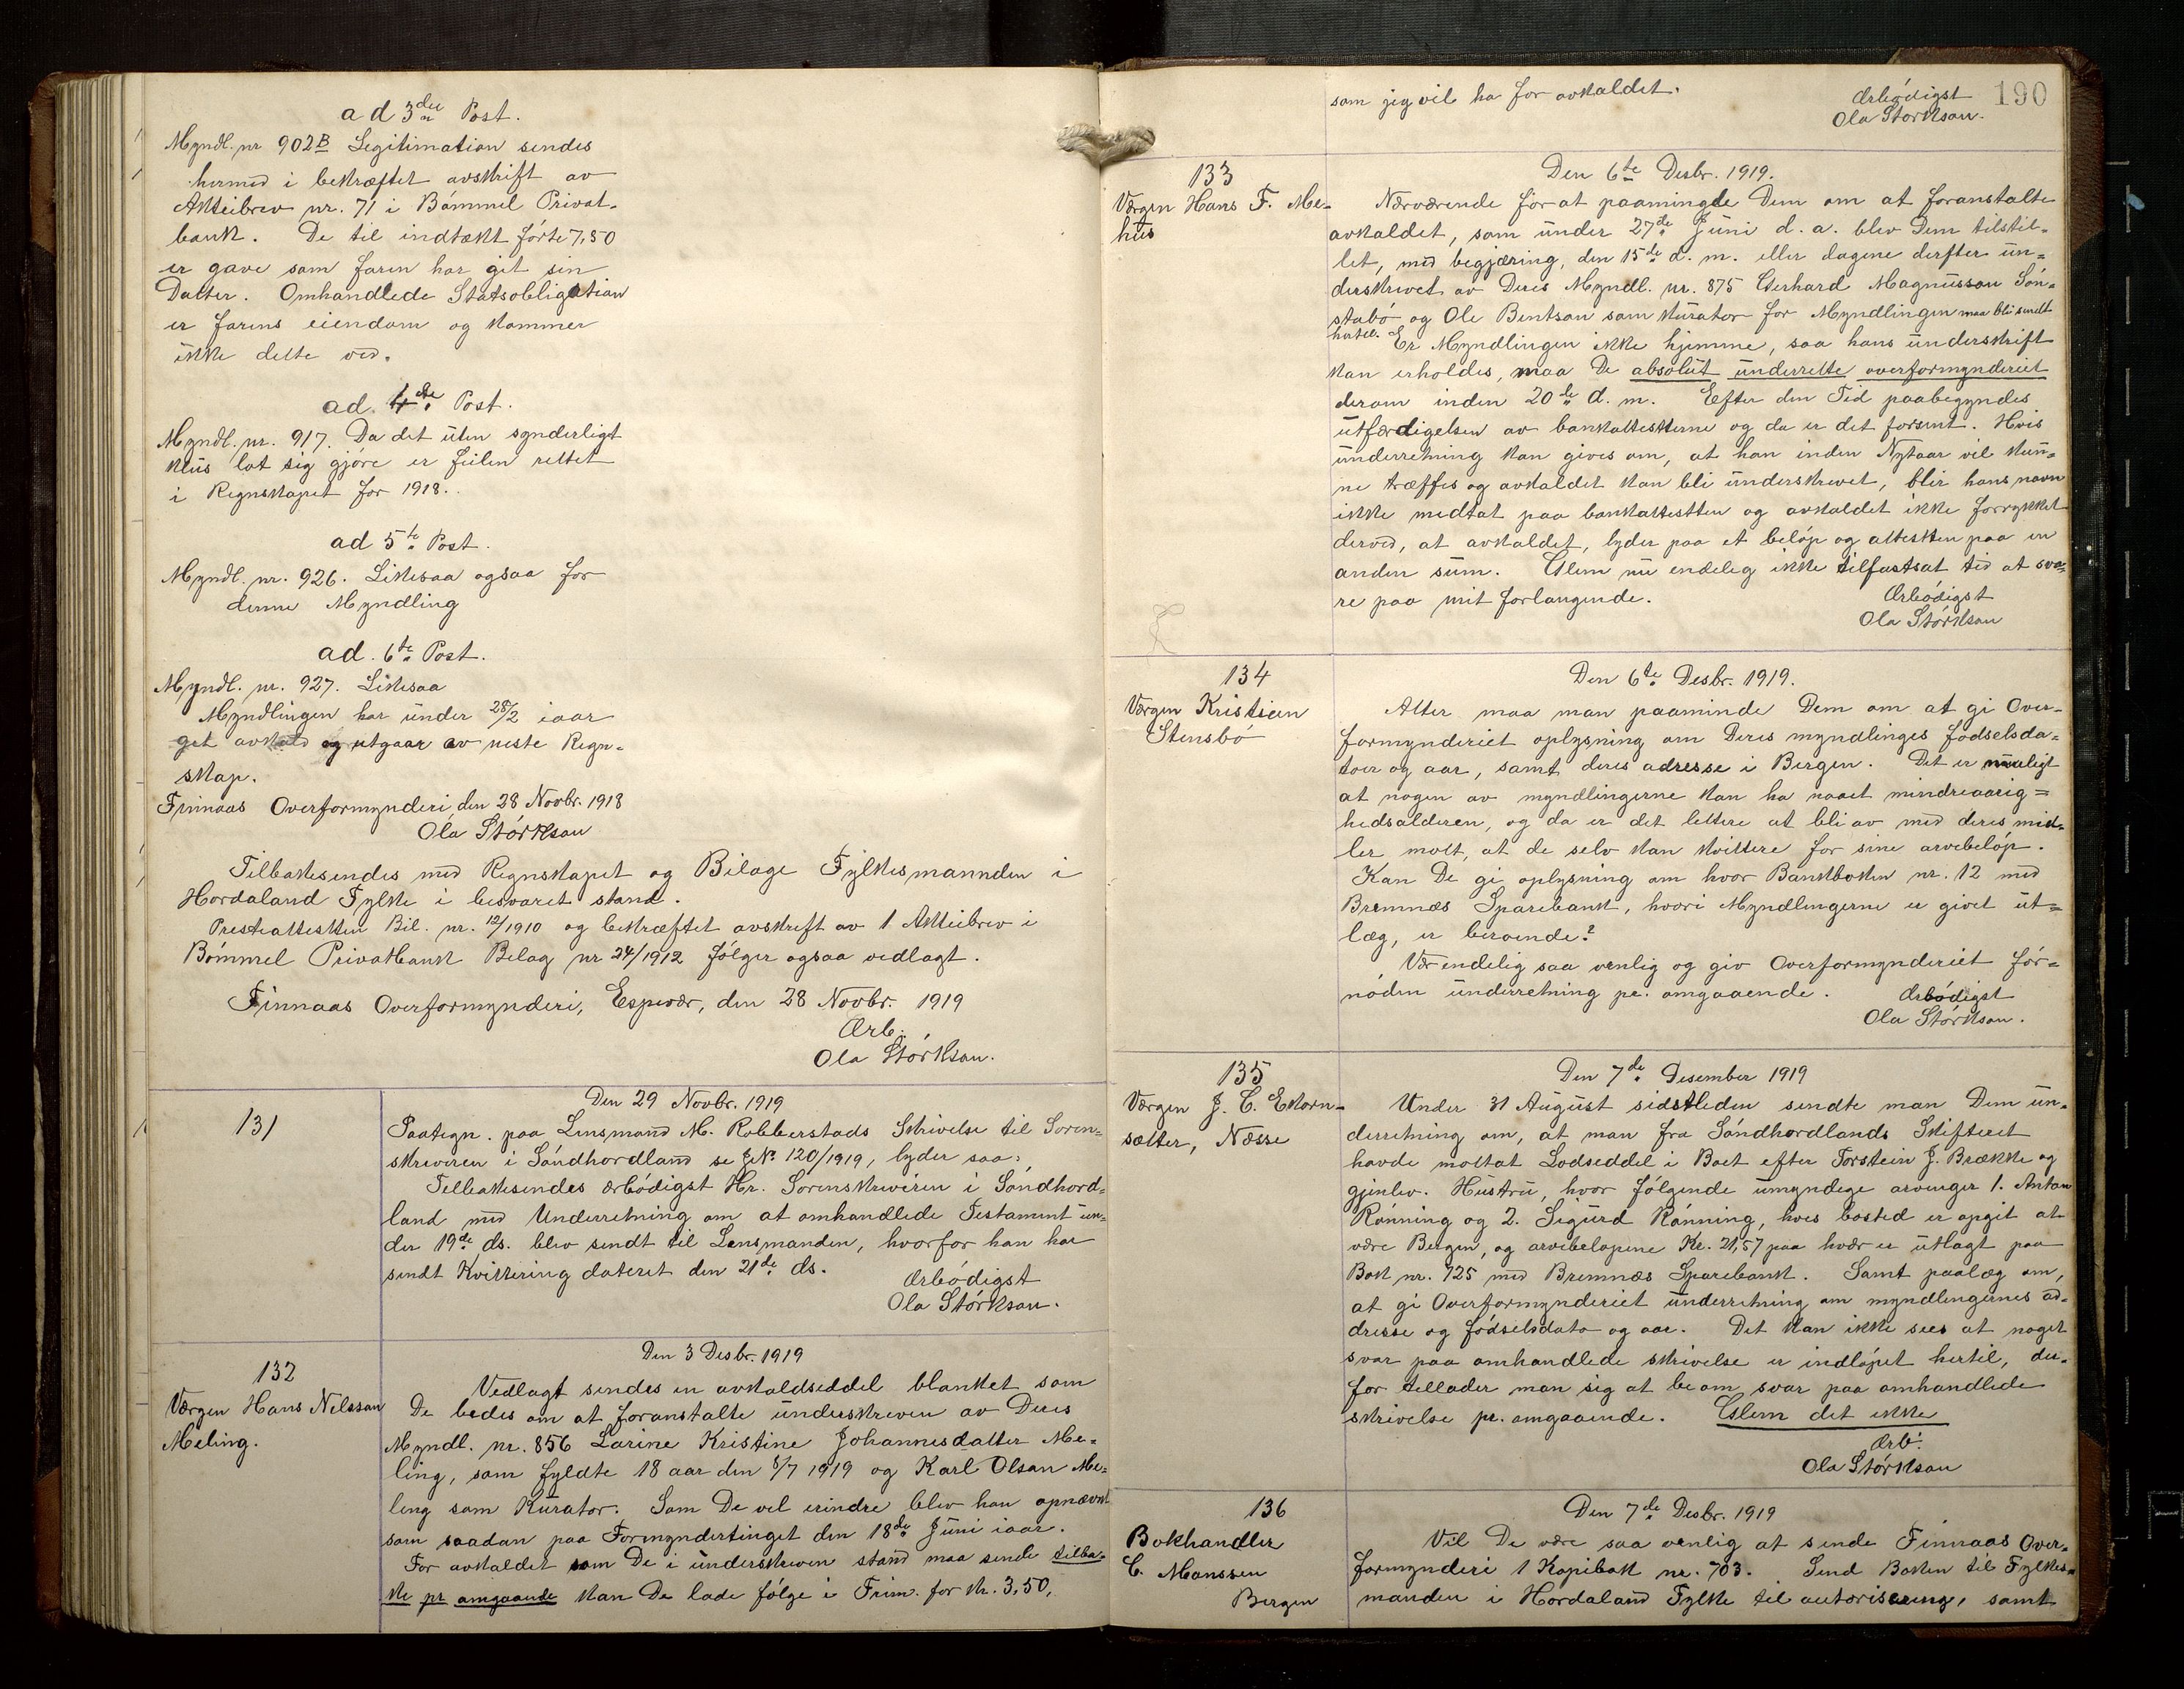 ad 3die Post.
Myndl. nr 902B Legitimation sendes
hermed i bekræftet avskrift av
Aktiebrev nr. 71 i Bómmel Privat-
bank. De til indtækt fórte 7,50
er gave som faren har git sin
Datter. Omhandlede Statsobligation
er farens eiendom og kommer
ikke dette ved.
ad. 4de Post.
Myndl. nr. 917. Da det uten synderligt
klus lot sig gjóre er feilen rettet
i Regnskapet for 1918.
ad 5te Post.
Myndl. nr. 926. Likesaa ogsaa for
denne Myndling
ad. 6te Post.
Myndl. nr. 927. Likesaa
Myndlingen har under 28/2 iaar
get avkald og utgaar av neste Regn-
skap.
Finnaas Overformynderi, den 28 Novbr. 1918
Ola Stórkson
Tilbakesendes med Regnskapet og Bilage Fylkesmannden i
Hordaland Fylke i besvaret stand.
Presteattesten Bil. nr. 12/1910 og bekræftet avskrift av 1 Aktiebrev i
Bómmel Privatbank Belag nr 24/1912 fólger ogsaa vedlagt.
Finnaas Overformynderi, Espevær, den 28 Novbr. 1919
Ærb.
Ola Stórkson.
131
Den 29 Novbr. 1919
Paategn. paa Lensmand M. Robberstads Skrivelse til Soren-
skriveren i Sóndhordland se J.No. 120/1919, lyder saa:
Tilbakesendes ærbódigst Hr. Sorenskriveren i Sóndhord-
land med Underretning om at omhandlede Testament un-
der 19de ds. blev sendt til Lensmanden, hvorfor han har
sendt Kvittering dateret den 21de ds.
Ærbódigst
Ola Stórkson.
132
Værgen Hans Nelsson
Meling.
Den 3 Desbr. 1919
Vedlagt sendes en avkaldseddel blanket som
De bedes om at foranstalte underskreven av Deres
Myndl. nr. 856 Larine Kristine Johannesdatter Me-
ling, som fyldte 18 aar den 8/7 1919 og Karl Olson Me-
ling som Kurator. Som De vel erindre blev han opnævnt
som saadan paa Formyndertinget den 18de Juni iaar.
For avkaldet som De i underskreven stand maa sende tilba-
ke pr omgaaende kan De lade fólge i Frim. for kr. 3,50,
190
som jeg vil ha for avkaldet.
Ærbódigst
Ola Stórkson.
133
Værgen Hans F. Me-
hus
Den 6te Desbr. 1919.
Nærværende for at paamingde Dem om at foranstalte
avkaldet, som under 27de Juni d. a. blev Dem tilstil-
let, med begjæring, den 15de d. m. eller dagene derfter un-
derskrevet av Deres Myndl. nr. 875 Gerhard Magnusson Són-
stabó og Ole Bentson som kurator for Myndlingen maa bli sendt
hertil. Er Myndlingen ikke hjemme, saa hans underskrift
kan erholdes, maa De absolut underrette overformynderiet
derom inden 20de d. m. Efter den Tid paabegyndes
utfærdigelsen av bankattesterne og da er det forsent. Hvis
underretning kan gives om, at han inden Nytaar vil kun-
ne træffes og avkaldet kan bli underskrevet, blir hans navn
ikke medtat paa bankattesten og avkaldet ikke forrykket
derved, at avkaldet, lyder paa et belóp og attesten paa en
anden sum. Glem nu endelig ikke tilfastsat tid at sva-
re paa mit forlangende.
Ærbódigst
Ola Stórkson
134
Værgen Kristian
Stensbó
Den 6te Desbr. 1919.
Atter maa man paaminde Dem om at gi Over-
formynderiet oplysning om Deres myndlinges fódselsda-
toer og aar, samt deres adresse i Bergen. Det er muligt
at nogen av myndlingerne kan ha naaet mindreaarig-
hedsalderen, og da er det lettere at bli av med deres mid-
ler mott, at de selv kan kvittere for sine arvebelóp.
Kan De gi oplysning om hvor Bankboken nr. 12 med
Bremnæs Sparebank, hvori Myndlingerne er givet ut-
læg, er beroende?
Vær endelig saa venlig og giv Overformynderiet fór-
nóden underretning pr. omgaaende.
Ærbódigst
Ola Stórkson.
135
Værgen J. C. Ekorn-
sætter, Næsse
Den 7de Desember 1919
Under 31 August sidstleden sendte man Dem un-
derretning om, at man fra Sóndhordlands Skifteret
havde mottat Lodseddel i Boet efter Torstein J. Brække og
gjenlev. Hustru, hvor fólgende umyndege arvinger 1. Anton
Rónning og 2. Sigurd Rónning, hves bosted er opgit at
være Bergen, og arvebelopene Kr. 21,57 paa hvær er utlagt paa
Bok nr. 725 med Bremnæs Sparebank. Samt paalæg om,
at gi Overformynderiet underretning om myndlingernes ad-
dresse og fódselsdato og aar. Det kan ikke sees at noget
svar paa omhandlede skrivelse er indlópet hertil, der-
for tillader man sig at be om svar paa omhandlede
skrivelse pr. omgaaende. Glem det ikke
Ærb.
Ola Stórkson
136
Bokhandler
C. Monssen
Bergen
Den 7de Desbr. 1919
Vil De være saa venlig at sende Finnaas Over-
formynderi 1 Kopibok nr. 703. Send Boken til Fylkes-
manden i Hordaland Fylke til autorisering, samt